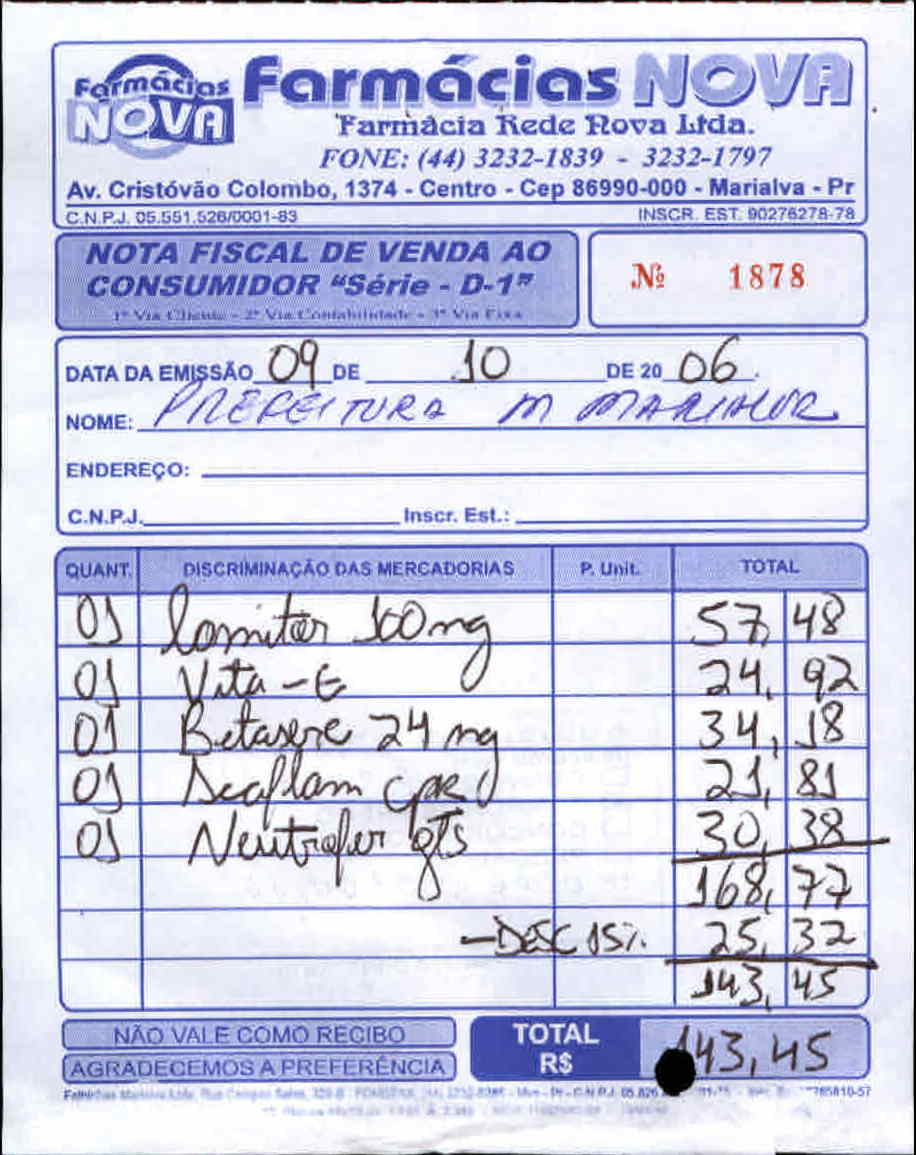 Farmácias NOVA
Farmácias NOVA
Farmácia Rede Nova Ltda.
FONE: (44) 3232-1839 - 3232-1797
Av. Cristóvão Colombo, 1374 - Centro - Cep 86990-000 - Marialva - Pr
C.N.P.J. 05.551.526/0001-83 INSCR. EST. 90276278-78
NOTA FISCAL DE VENDA AO
CONSUMIDOR "Série - D-1"
1ª Via Cliente - 2ª Via Contabilidade - 3ª Via Fixa
Nº 1878
DATA DA EMISSÃO 09 DE 10 DE 20 06.
NOME: PREFEITURA M
ENDEREÇO:
C.N.P.J. Inscr. Est.:
QUANT. DISCRIMINAÇÃO DAS MERCADORIAS P. Unit. TOTAL
01 100 mg 57,48
01 Vita-E 24,92
01 24 mg 34,18
01 21,81
01 Neutrofer gts 30,38
168,77
-DESC 15% 25,32
143,45
NÃO VALE COMO RECIBO
AGRADECEMOS A PREFERÊNCIA
TOTAL R$ 143,45